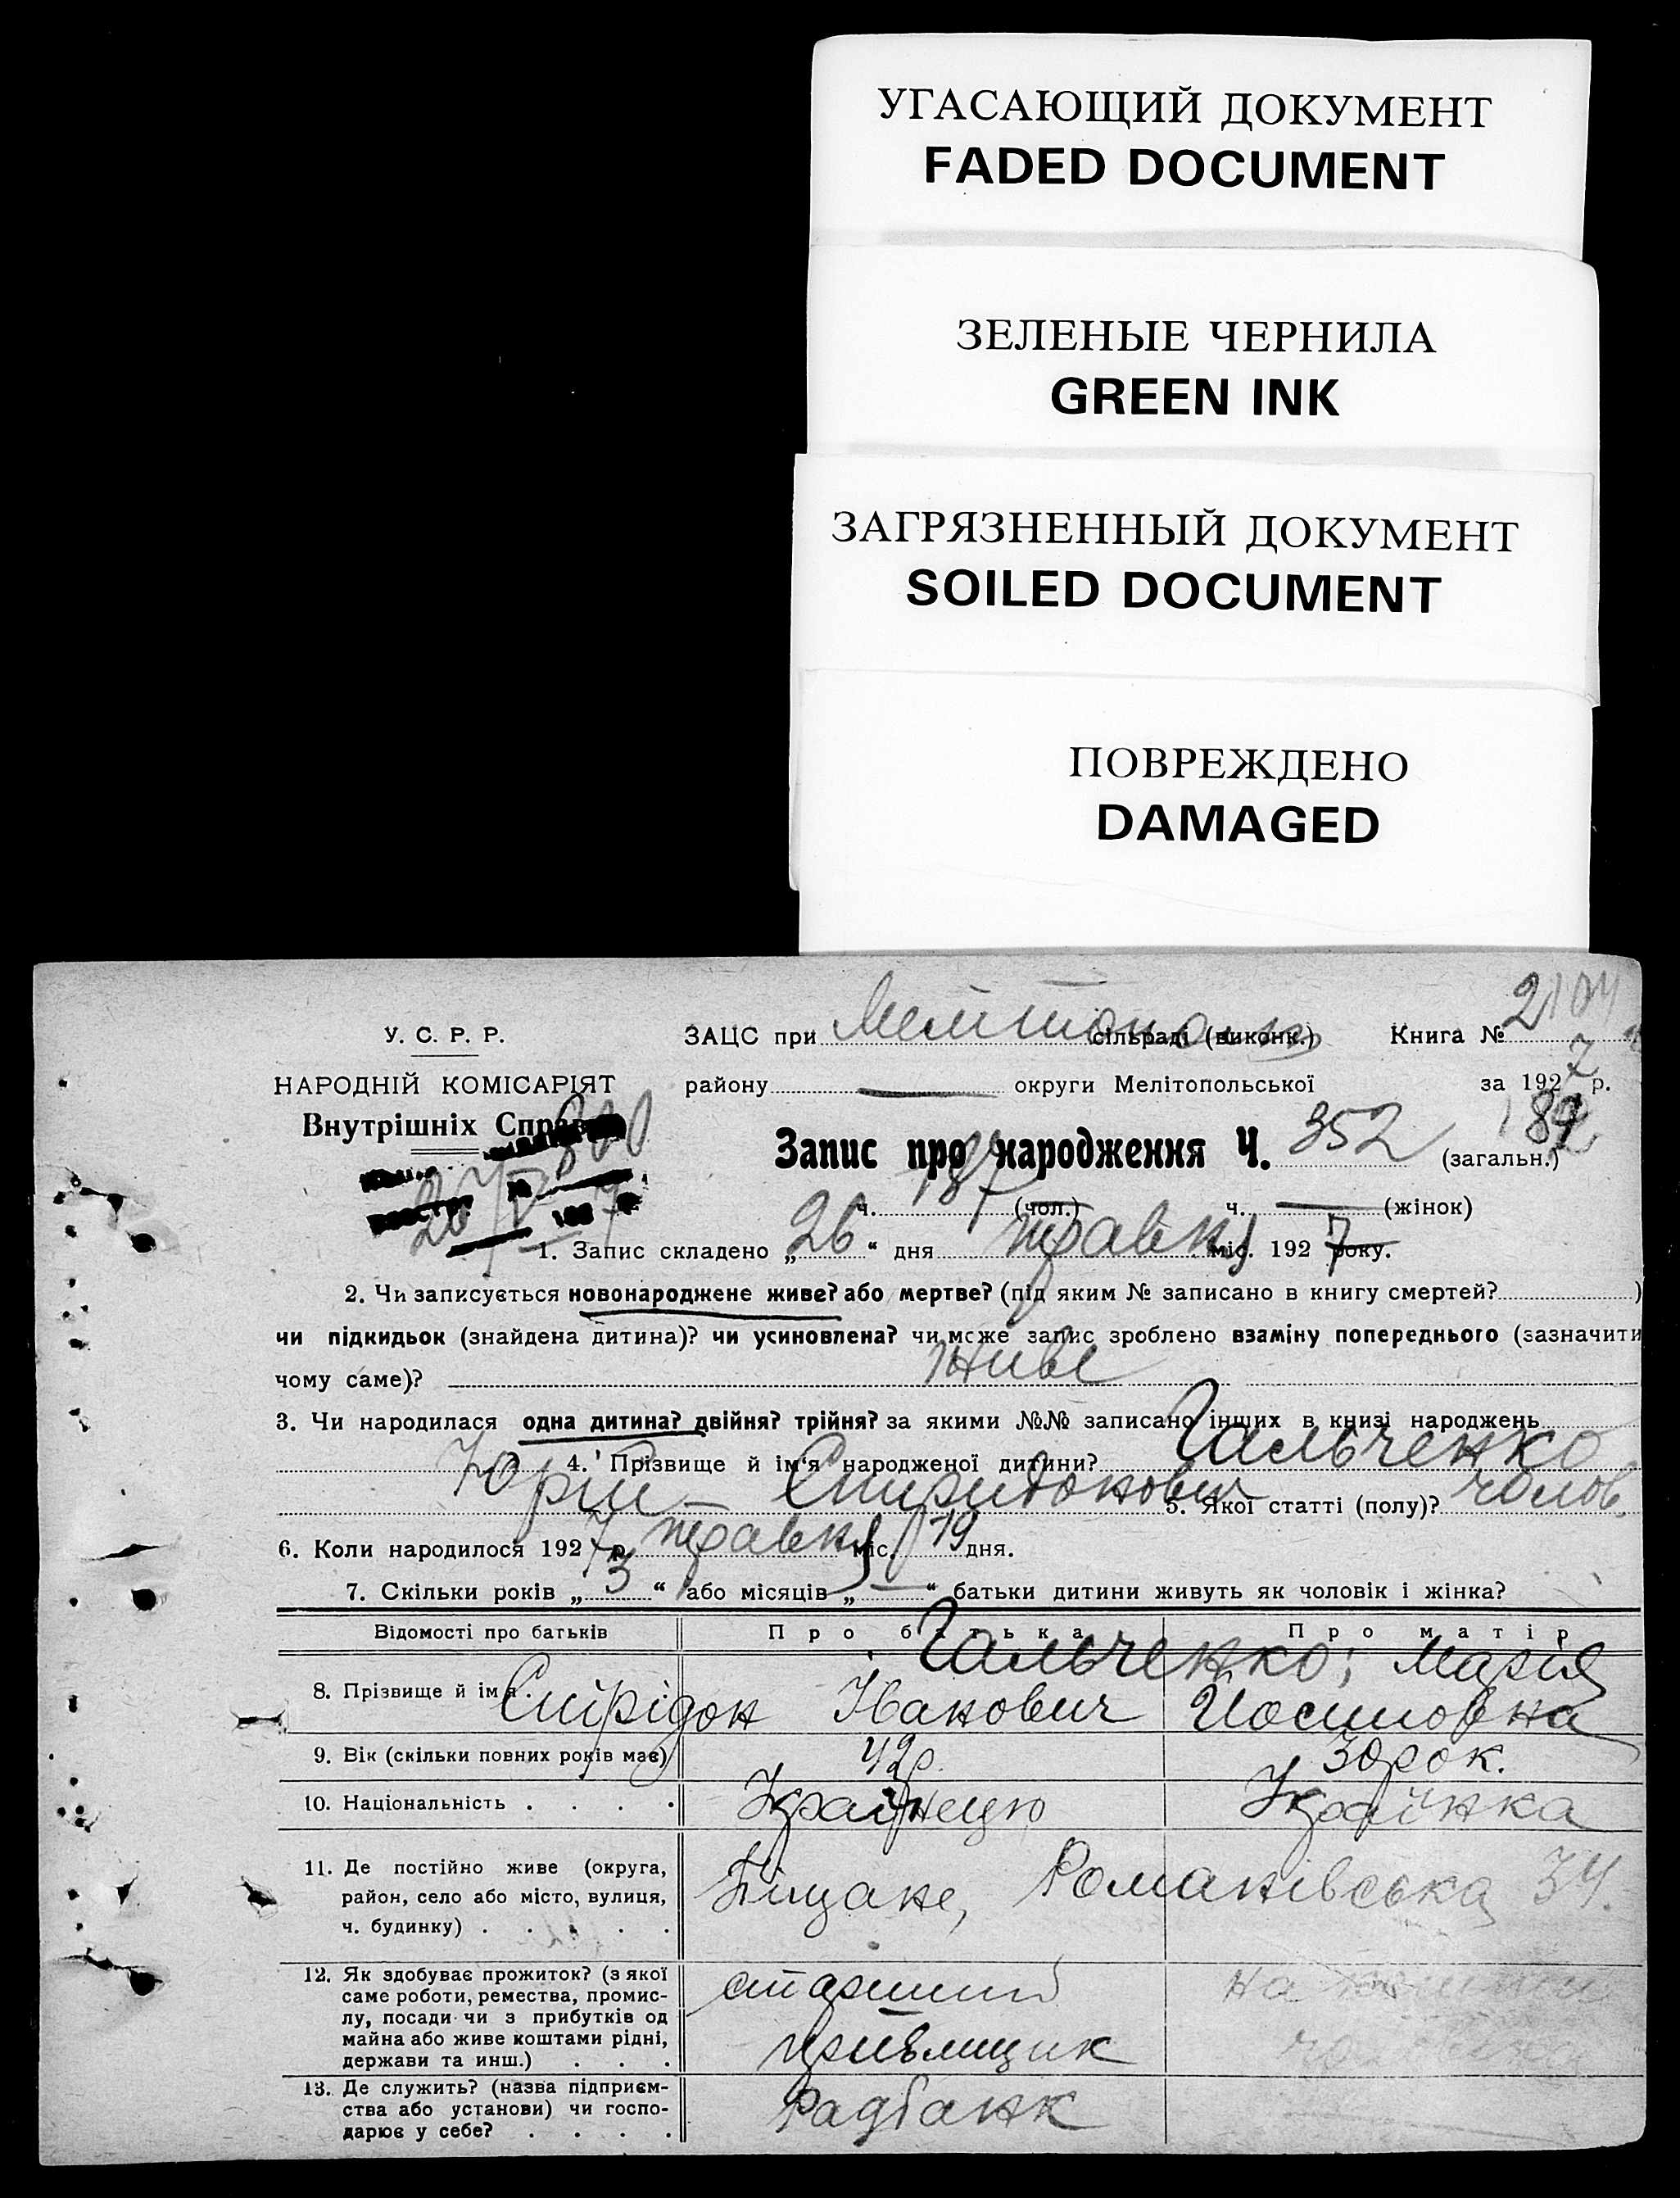 УГАСАЮЩИЙ ДОКУМЕНТ
FADED DOCUMENT
ЗЕЛЕНЫЕ ЧЕРНИЛА
GREEN INK
ЗАГРЯЗНЕННЫЙ ДОКУМЕНТ
SOILED DOCUMENT
ПОВРЕЖДЕНО
DAMAGED
У. С. Р. Р.
НАРОДНІЙ КОМІСАРІЯТ
Внутрішніх Справ
ЗАЦС при Мелітополь сільраді (виконк.) Книга № 2104
району — округи Мелітопольської за 1927 р.
Запис про народження Ч. 352 (загальн.)
ч. 187 (чол.) ч. — (жінок)
1. Запис складено „ 26 “ дня травня міс. 1927 року.
2. Чи записується новонароджене живе? або мертве? (під яким № записано в книгу смертей? )
чи підкидьок (знайдена дитина)? чи усиновлена? чи може запис зроблено взаміну попереднього (зазначити
чому саме)? живе
3. Чи народилася одна дитина? двійня? трійня? за якими №№ записано інших в книзі народжень
4. Прізвище й ім'я народженої дитини? Гальченко
Юрій Спиридонович 5. Якої статті (полу)? чолов.
6. Коли народилося 1927 р. травня міс. 19 дня.
7. Скільки років „ 3 “ або місяців „ — “ батьки дитини живуть як чоловік і жінка?
Відомості про батьків Про батька Про матір
8. Прізвище й ім'я. Гальченко; Марія
Спірідон Іванович Йосиповна
9. Вік (скільки повних років має) 42р. 30 рок.
10. Національність . . . . Українець Українка
11. Де постійно живе (округа,
район, село або місто, вулиця,
ч. будинку) . . . . .
Піщане, Романівська 34.
12. Як здобуває прожиток? (з якої
саме роботи, ремества, промис-
лу, посади чи з прибутків од
майна або живе коштами рідні,
держави та инш.) . . .
старший
приёмщик
на
13. Де служить? (назва підприєм-
ства або установи) чи госпо-
дарює у себе? . . . .
Радбанк